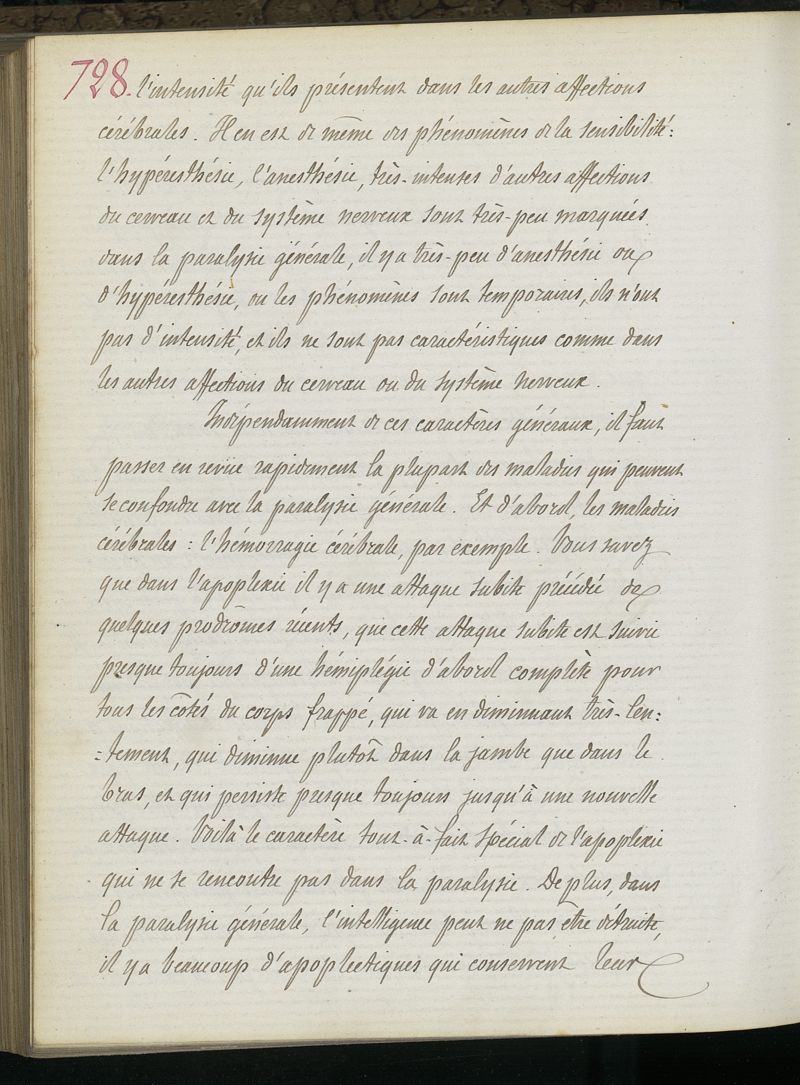 728. l'intensité qu'ils présentent dans les autres affections
cérébrales. Il en est de même des phénomènes de la sensibilité:
l'hypéresthésie, l'anesthésie, très-intenses d'autres affections
du cerveau et du système nerveux sont très-peu marquées
dans la paralysie générale, il y a très-peu d'anesthésie ou
d'hypéresthésie, ou les phénomènes sont temporaires, ils n'ont
pas d'intensité, et ils ne sont pas caractéristiques comme dans
les autres affections du cerveau ou du système nerveux.
Indépendamment de ces caractères généraux, il faut
passer en revue rapidement la plupart des maladies qui peuvent
se confondre avec la paralysie générale. Et d'abord, les maladies
cérébrales : l'hémorragie cérébrale, par exemple. Vous savez
que dans l'apoplexie il y a une attaque subite précédée de
quelques prodrômes récents, que cette attaque subite est suivie
presque toujours d'une hémiplégie d'abord complète pour
tous les côtés du corps frappé, qui va en diminuant très-len:
=tement, qui diminue plutôt dans la jambe que dans le
bras, et qui persiste presque toujours jusqu'à une nouvelle
attaque. Voilà le caractère tout-à-fait spécial de l'apoplexie
qui ne se rencontre pas dans la paralysie. De plus, dans
la paralysie générale, l'intelligence peut ne pas être détruite,
il y a beaucoup d'apoplectiques qui conservent leur